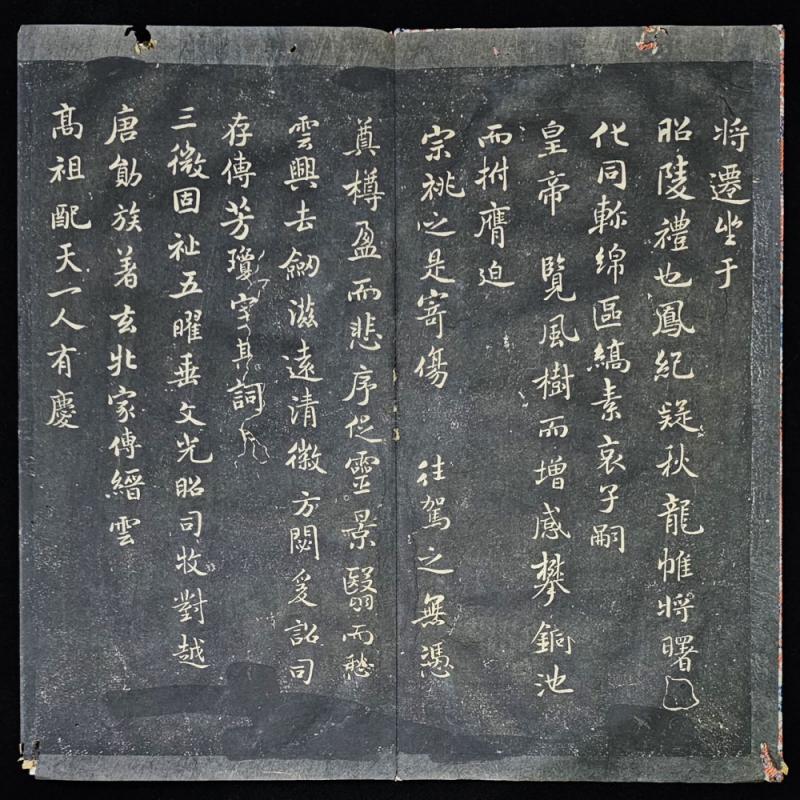 将遷坐于
昭陵禮也鳳紀疑秋龍帷将曙
化同軫綿區縞素哀子嗣
皇帝覽風樹而增感攀銅池
而拊膺迫
宗祧之是寄傷往駕之無憑
奠樽盈而悲序促靈景翳而愁
雲興去劒滋遠清徽方閟爰詔司
存傳芳瓊字其詞
三微固祉五曜垂文光昭司牧對越
唐勛族著玄北家傳縉雲
髙祖配天一人有慶